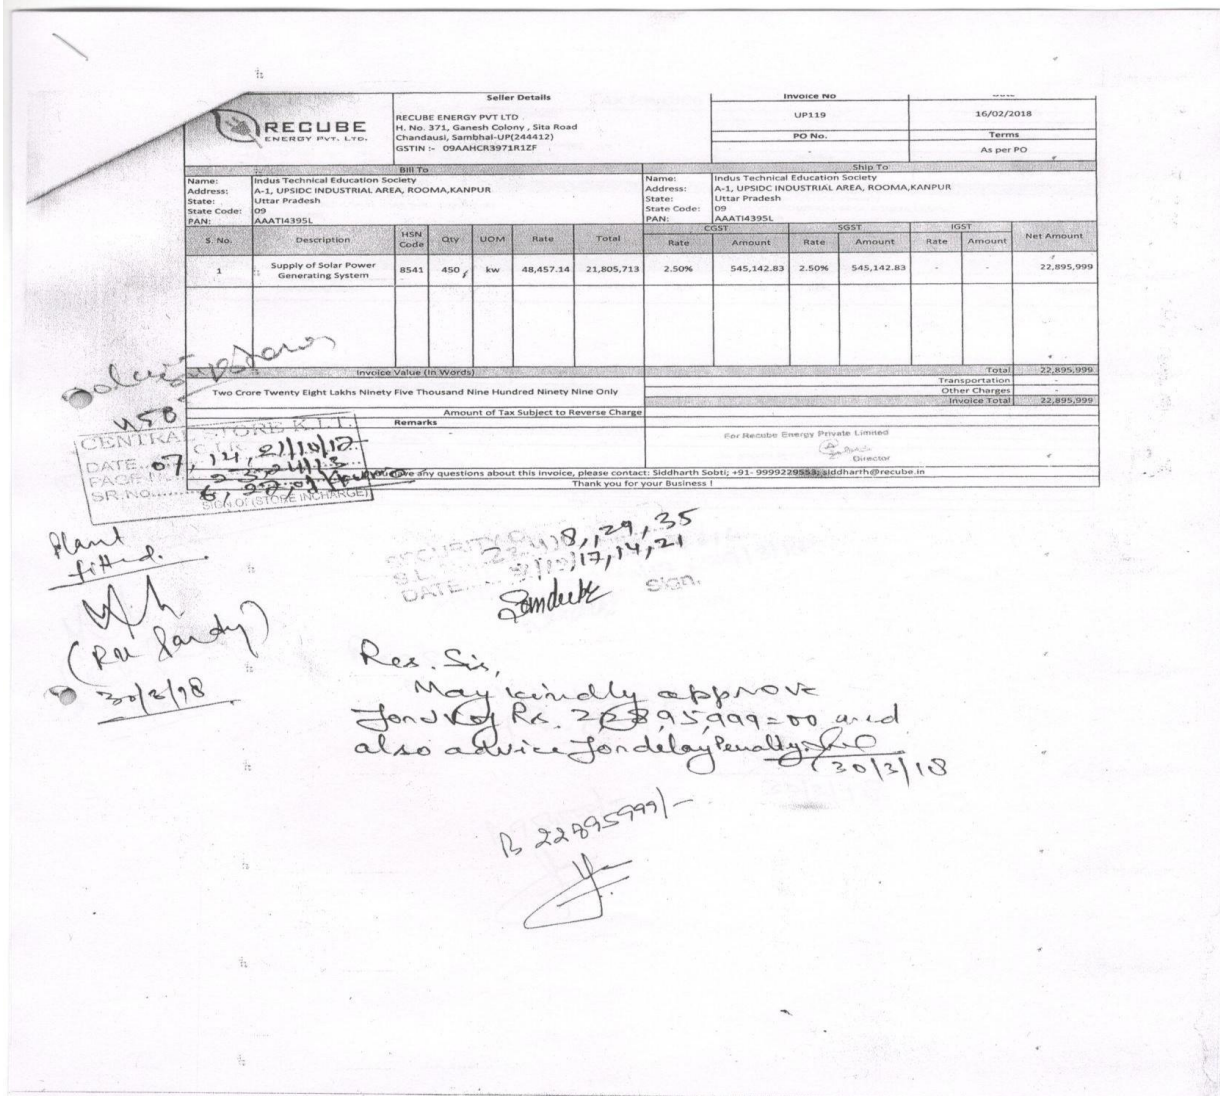 Seller Details
Invoice No
RECUBE
ENERGY PVT. LTD.
RECUBE ENERGY PVT LTD
H. No. 371, Ganesh Colony , Sita Road
Chandausi, Sambhal-UP(244412)
GSTIN :- 09AAHCR3971R1ZF
UP119
16/02/2018
PO No.
Terms
-
As per PO
Bill To
Ship To
Name: Indus Technical Education Society
Address: A-1, UPSIDC INDUSTRIAL AREA, ROOMA,KANPUR
State: Uttar Pradesh
State Code: 09
PAN: AAATI4395L
Name: Indus Technical Education Society
Address: A-1, UPSIDC INDUSTRIAL AREA, ROOMA,KANPUR
State: Uttar Pradesh
State Code: 09
PAN: AAATI4395L
S. No. Description HSN Code Qty UOM Rate Total CGST SGST IGST Net Amount
Rate Amount Rate Amount Rate Amount
1 Supply of Solar Power Generating System 8541 450 kw 48,457.14 21,805,713 2.50% 545,142.83 2.50% 545,142.83 - - 22,895,999
Invoice Value (In Words)
Total 22,895,999
Transportation -
Two Crore Twenty Eight Lakhs Ninety Five Thousand Nine Hundred Ninety Nine Only
Other Charges -
Invoice Total 22,895,999
Amount of Tax Subject to Reverse Charge
Remarks
For Recube Energy Private Limited
Director
any questions about this invoice, please contact: Siddharth Sobti; +91- 9999229553; siddharth@recube.in
Thank you for your Business !
450
CENTRAL STORE K.I.T.
DATE
PAGE
SR.NO.
SIGN OF (STORE INCHARGE)
Plant
fitted.
30/3/18
SECURITY
S.L. 8, 29, 35
DATE 17, 14, 21
Sign.
Res. Sir,
May kindly approve
for Rs. 22895,999=00 and
also advice for delay Penalty.
30/3/18
22895999/-